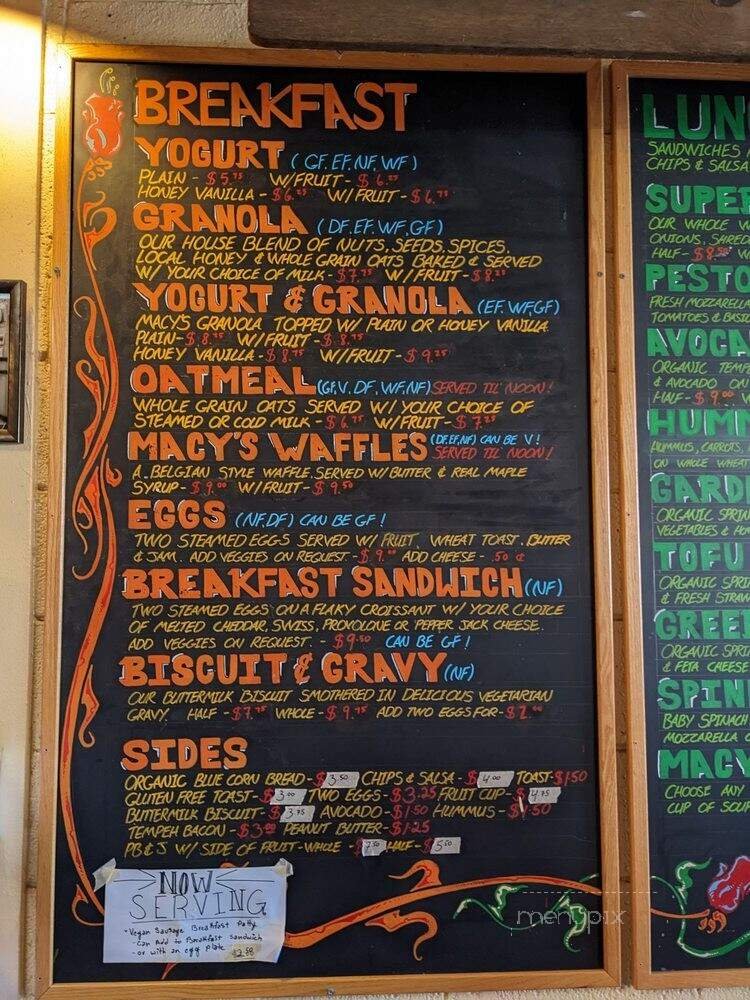 BREAKFAST
YOGURT (GF, EF, NF, WF)
PLAIN - $5.75 W/FRUIT - $6.25
HONEY VANILLA - $6.25 W/FRUIT - $6.75
GRANOLA (DF, EF, WF, GF)
OUR HOUSE BLEND OF NUTS, SEEDS, SPICES,
LOCAL HONEY & WHOLE GRAIN OATS BAKED & SERVED
W/ YOUR CHOICE OF MILK - $7.75 W/FRUIT - $8.25
YOGURT & GRANOLA (EF, WF, GF)
MACY'S GRANOLA TOPPED W/ PLAIN OR HONEY VANILLA
PLAIN - $8.25 W/FRUIT - $8.75
HONEY VANILLA - $8.75 W/FRUIT - $9.25
OATMEAL (GF, V, DF, WF, NF) SERVED TIL' NOON!
WHOLE GRAIN OATS SERVED W/ YOUR CHOICE OF
STEAMED OR COLD MILK - $6.75 W/FRUIT - $7.25
MACY'S WAFFLES (DF, EF, NF) CAN BE V!
SERVED TIL' NOON!
A BELGIAN STYLE WAFFLE SERVED W/ BUTTER & REAL MAPLE
SYRUP - $9.00 W/FRUIT - $9.50
EGGS (NF, DF) CAN BE GF!
TWO STEAMED EGGS SERVED W/ FRUIT, WHEAT TOAST, BUTTER
& JAM. ADD VEGGIES ON REQUEST - $9.00 ADD CHEESE - .50 ¢
BREAKFAST SANDWICH (NF)
TWO STEAMED EGGS ON A FLAKY CROISSANT W/ YOUR CHOICE
OF MELTED CHEDDAR, SWISS, PROVOLONE OR PEPPER JACK CHEESE.
ADD VEGGIES ON REQUEST. - $9.50 CAN BE GF!
BISCUIT & GRAVY (NF)
OUR BUTTERMILK BISCUIT SMOTHERED IN DELICIOUS VEGETARIAN
GRAVY. HALF - $7.75 WHOLE - $9.75 ADD TWO EGGS FOR - $2.00
SIDES
ORGANIC BLUE CORN BREAD - $3.50 CHIPS & SALSA - $4.00 TOAST - $1.50
GLUTEN FREE TOAST - $3.00 TWO EGGS - $3.25 FRUIT CUP - $4.75
BUTTERMILK BISCUIT - $3.75 AVOCADO - $1.50 HUMMUS - $1.50
TEMPEH BACON - $3.00 PEANUT BUTTER - $1.25
PB & J W/ SIDE OF FRUIT - WHOLE - $7.50 HALF - $5.50
NOW
SERVING
*Vegan Sausage Breakfast Patty
- Can Add to Breakfast Sandwich
- or with an egg plate $2.50
menupix
LUN
SANDWICHES
CHIPS & SALSA
SUPE
OUR WHOLE W
ONIONS, SHRED
HALF - $8.50 W
PESTO
FRESH MOZZARELLA
TOMATOES & BASIL
AVOCA
ORGANIC TEMP
& AVOCADO ON
HALF - $9.00 W
HUMM
HUMMUS, CARROTS,
ON WHOLE WHEAT
GARD
ORGANIC SPRIN
VEGETABLES & HO
TOFU
ORGANIC SPRI
& FRESH STRAW
GREE
ORGANIC SPRI
& FETA CHEESE
SPIN
BABY SPINACH
MOZZARELLA
MACY
CHOOSE ANY
CUP OF SOU